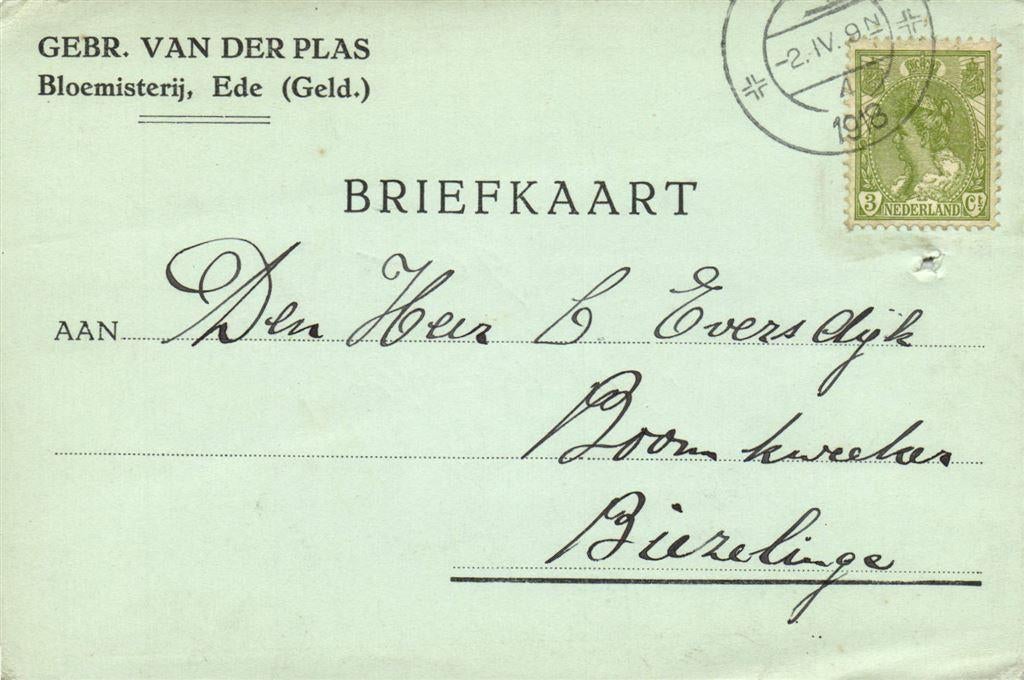 GEBR. VAN DER PLAS
Bloemisterij, Ede (Geld.)
-2.IV. 9N
1918
3 NEDERLAND Ct
BRIEFKAART
AAN Den Heer C Eversdijk
Boomkweeker
Biezelinge